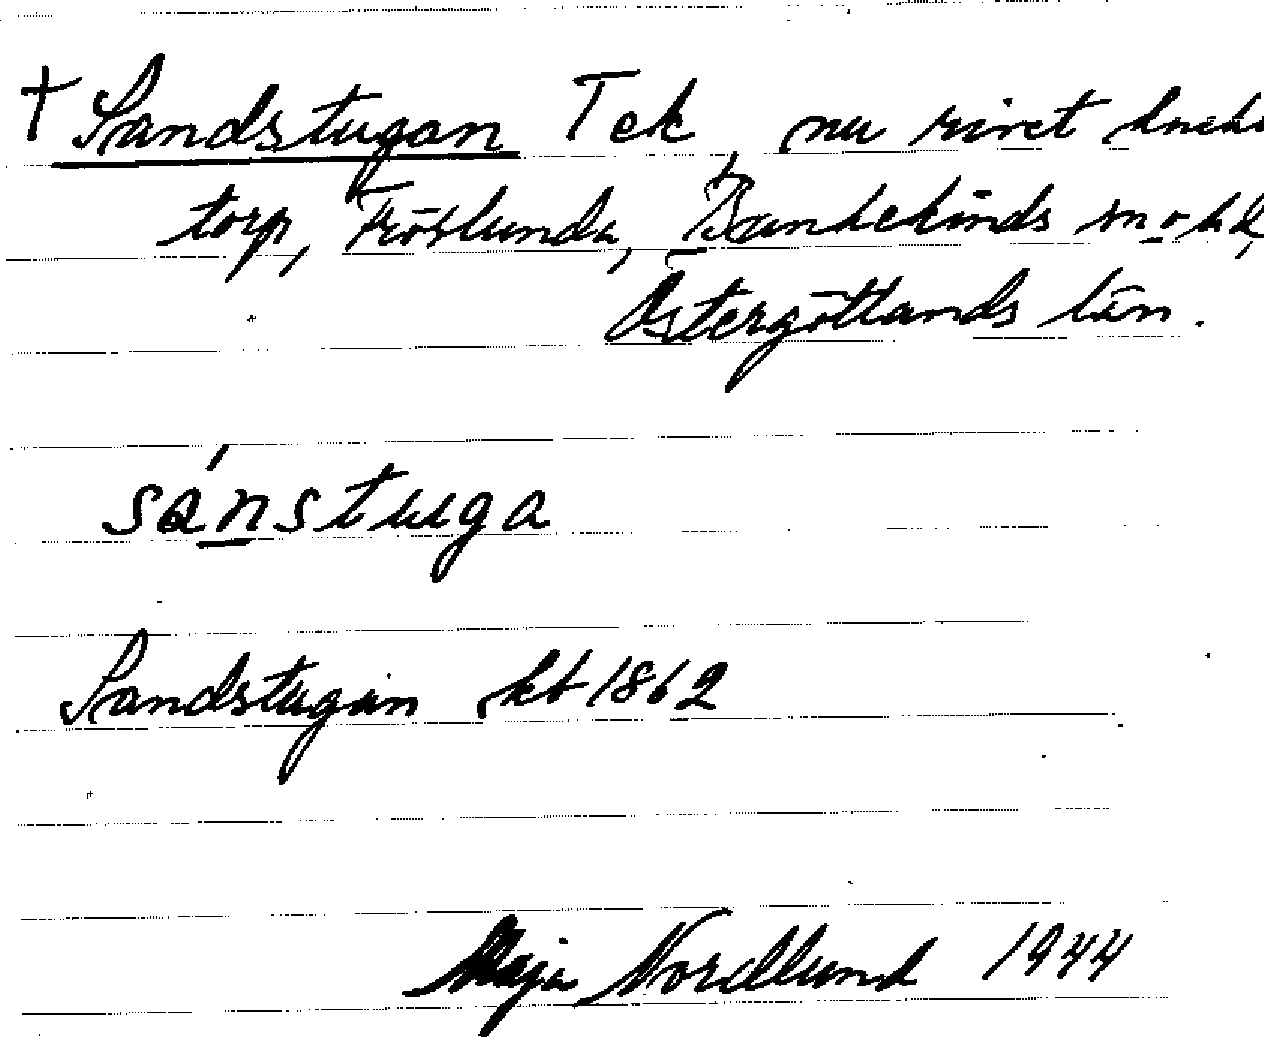 † Sandstugan Tek, nu rivet knekt
torp, Fröslunda, Bankekinds sn o hd,
Östergötlands län.
sánstuga
Sandstugan kb 1862
Maja Nordlund 1944